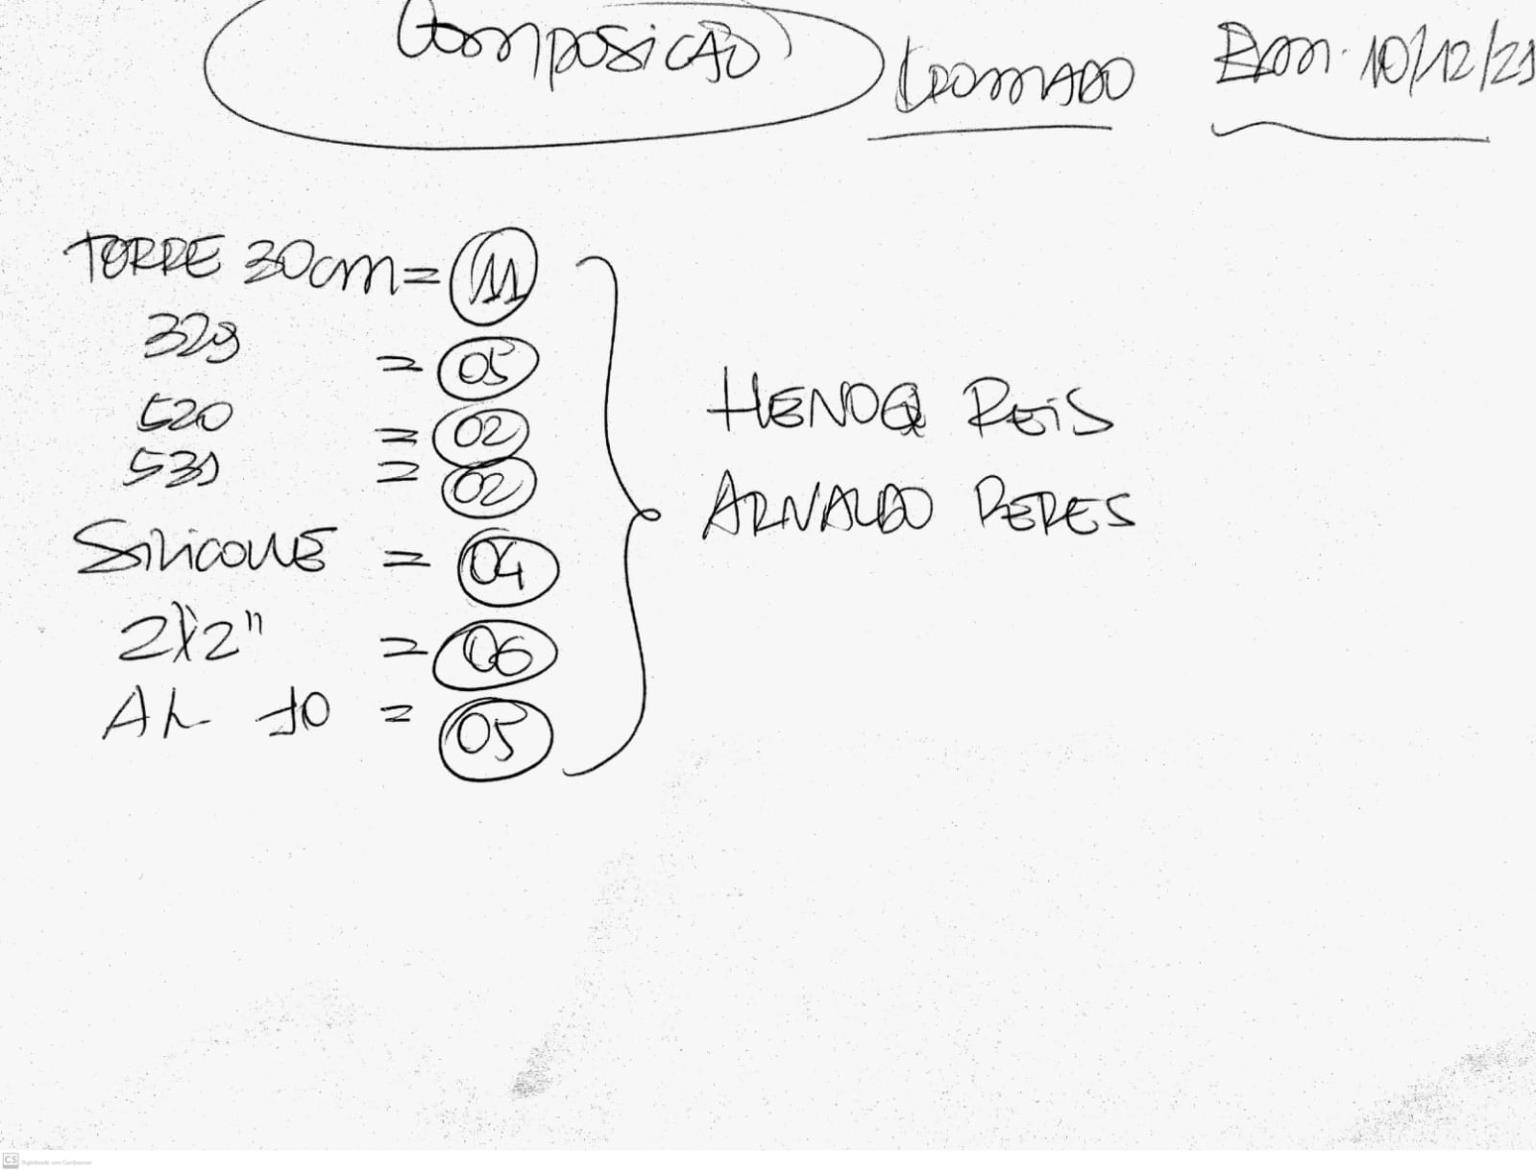 COMPOSICÃO CROMADO Em. 10/12/21
TORRE 30cm = 11
329 = 05
520 = 02
531 = 02
SILICONE = 04
2X2" = 06
AL 10 = 05
HENOQ REIS
ARNALDO PERES
CS Digitalizado com CamScanner